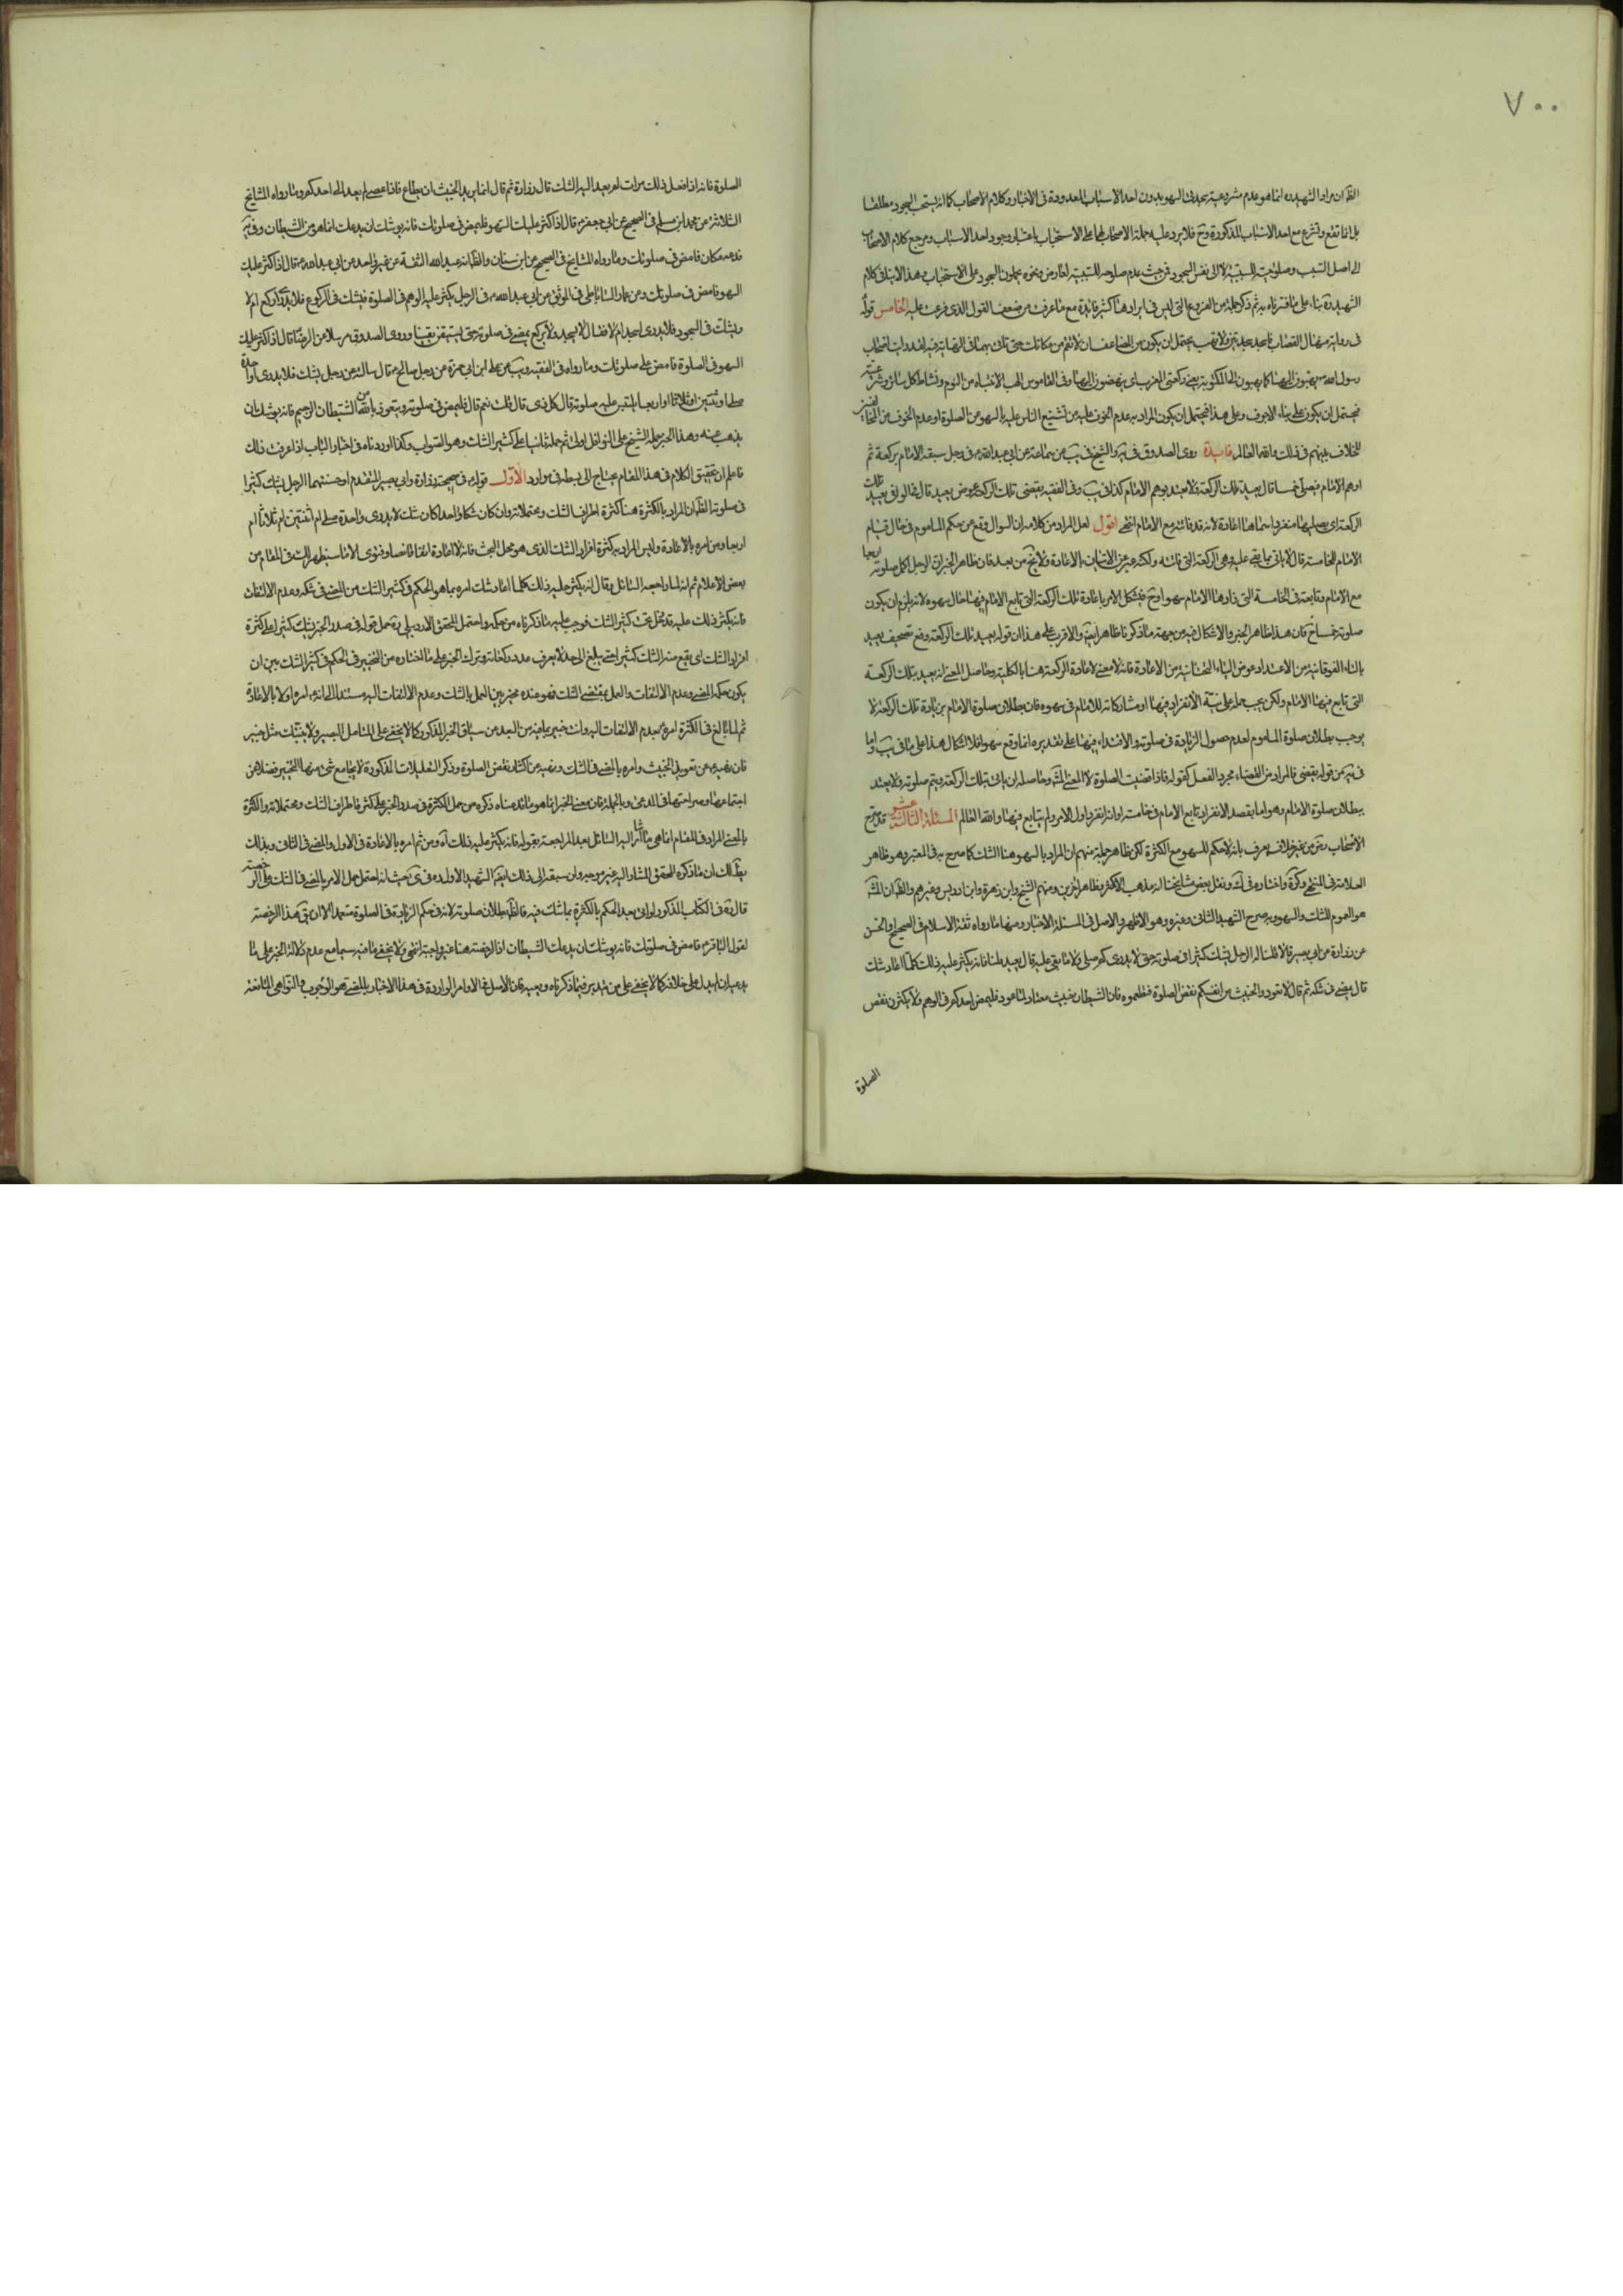 ٧٠٠
الظ ان مراد الشهيد ره انما هو عدم مشروعية سجدتى السهو بدون احد الاسباب المعدودة فى الاخبار وكلام الاصحاب كما انه يستحب السجود مطلقا
بل انما تقع وتشرع مع احد الاسباب المذكورة وح فلا يرد عليه حملة الاصحاب لها على الاستحباب باعتبار وجود احد الاسباب ومرجع كلام الاصحاب
الى اصل السبب وصلوحيته للسببية لا الى نفس السجود فمن حيث عدم صلوحه للسببية لمعارض ونحوه يحملون السجود على الاستحباب وهذا لا ينافى كلام
الشهيد ره بناء على ما فسرناه به ثم ذكر جملة من الفروع التى ليس فى ايرادها كثير فائدة مع ما عرفت من ضعف القول الذى فرعت عليه الخامس قوله
فى رواية منهال القصاب
رسول الله
فيحتمل ان يكون على بناء الاجوف وعلى هذا فيحتمل ان يكون المراد به عدم الخوف عليه من تشنيع الناس عليه بالسهو عن الصلوة او عدم الخوف من
للخلاف بينهم فى ذلك والله العالم فايدة روى الصدوق فى يه والشيخ فى يب عن سماعة عن ابى عبد الله ع فى رجل سبقه الامام بركعة ثم
اوهم الامام فصلى خمسا قال يعيد تلك الركعة ولا يعتد بوهم الامام كذا فى يب وفى الفقيه يقضى تلك الركعة عوض يعيد قال فى الوافى يعيد تلك
الركعة اى يصليها منفردا سماها اعادة لانه قد فاتته مع الامام انتهى اقول لعل المراد من كلامه ان السوال وقع عن حكم الماموم فى حال قيام
الامام للخامسة قال لا ياتى بما بقى عليه وهى الركعة التى فاتته ولكنه عبر عن الاتيان بالاعادة ولا يخ من بعد فان ظاهر الخبر ان الرجل اكمل صلوته اربعا
مع الامام وتابعه فى الخامسة التى زادها الامام سهوا وح فيشكل الامر باعادة تلك الركعة التى تابع الامام فيها حال سهوه لانه يلزم ان يكون
صلوته خمسا ح فان هذا ظاهر الخبر والاشكال فيه من جهة ما ذكرنا ظاهر ايضا والاقرب على هذا ان قوله يعيد تلك الركعة وقع تصحيف يعتد
بالتاء الفوقانية من الاعتداد عوض الياء التحتانية من الاعادة فانه لا معنى لاعادة الركعة هنا بالكلية وحاصل المعنى انه يعتد بتلك الركعة
التى تابع فيها الامام ولكن يجب حمله على نية الانفراد فيها او مشاركته للامام فى سهوه فان بطلان صلوة الامام بزيادة تلك الركعة لا
يوجب بطلان صلوة الماموم لعدم حصول الزيادة فى صلوته والاقتداء فيها على تقديره انما وقع سهوا فلا اشكال هذا على ما فى يب واما
فى يه من قوله يقضى فالمراد من القضاء مجرد الفعل كقوله فاذا قضيت الصلوة لا المعنى المشهور وحاصله ان ياتى بتلك الركعة ويتم صلوته ولا يعتد
ببطلان صلوة الامام وهو اما بقصد الانفراد تابع الامام فى خامسته او انه انفرد اول الامر ولم يتابع فيها والله العالم المسئلة الثالثة عشر قد صرح
الاصحاب رض من غير خلاف يعرف بانه لا حكم للسهو مع الكثرة لكن ظاهر جملة منهم ان المراد بالسهو هنا الشك كما صرح به فى المعتبر وهو ظاهر
العلامة فى المنتهى وكرة واختاره فى ك ونقل بعض مشايخنا انه مذهب الاكثر وظاهر اخرين ومنهم الشيخ وابن زهرة وابن ادريس وغيرهم والظ ان المش
هو العموم للشك والسهو وبه صرح الشهيد الثانى وغيره وهو الاظهر والاصل فى المسئلة الاخبار ومنها ما رواه ثقة الاسلام فى الصحيح او الحسن
عن زرارة عن ابى بصير قالا قلنا له الرجل يشك كثيرا فى صلوته حتى لا يدرى كم صلى ولا ما بقى عليه قال يعيد قلنا فانه يكثر عليه ذلك كلما اعاد شك
قال يمضى فى شكه ثم قال لا تعودوا الخبيث من انفسكم نقض الصلوة فتطمعوه فان الشيطان خبيث معتاد لما عود فليمض احدكم فى الوهم ولا يكثرن نقض
الصلوة
الصلوة فانه اذا فعل ذلك مرات لم يعد اليه الشك قال زرارة ثم قال انما يريد الخبيث ان يطاع فاذا عصى لم يعد الى احدكم وما رواه المشايخ
الثلاثة عن محمد ابن مسلم فى الصحيح عن ابى جعفر ع قال اذا كثر عليك السهو فامض فى صلوتك فانه يوشك ان يدعك انما هو من الشيطان وفى يه
فدعه مكان فامض فى صلوتك وما رواه المشايخ فى الصحيح عن ابن سنان والظ انه عبد الله الثقة عن غير واحد عن ابى عبد الله ع قال اذا كثر عليك
السهو فامض فى صلوتك وعن عمار الساباطى فى الموثق عن ابى عبد الله ع فى الرجل يكثر عليه الوهم فى الصلوة فيشك فى الركوع فلا يدرى اركع ام لا
ويشك فى السجود فلا يدرى اسجد ام لا فقال لا يسجد ولا يركع يمضى فى صلوته حتى يستيقن يقينا وروى الصدوق مرسلا عن الرضا قال اذا كثر عليك
السهو فى الصلوة فامض على صلوتك وما رواه فى الفقيه ويب عن على ابن ابى حمزة عن رجل صالح ع قال سالته عن رجل يشك فلا يدرى اواحدة
صلى او ثنتين او ثلاثا او اربعا تلتبس عليه صلوته قال كل ذى قال قلت نعم قال فليمض فى صلوته ويتعوذ بالله من الشيطان الرجيم فانه يوشك ان
يذهب عنه وهذا الخبر حمله الشيخ على النوافل اولا ثم حمله ثانيا على كثير الشك وهو الصواب وكذا اوردناه فى اخبار الباب اذا عرفت ذلك
فاعلم ان تحقيق الكلام فى هذا المقام يحتاج الى بسطه فى موارد الاول قوله ع فى صحيحة زرارة وابى بصير المتقدم او حسنتهما الرجل يشك كثيرا
فى صلوته الظ ان المراد بالكثرة هنا كثرة اطراف الشك ومحتملاته وان كان شكا واحدا كان شك لا يدرى واحدة صلى ام اثنتين ام ثلاثا ام
اربعا ومن امره بالاعادة وليس المراد به كثرة افراد الشك الذى هو محل البحث فانه لا اعادة اتفاقا نصا وفتوى الا ما سيظهر لك فى المقام من
بعض الاعلام ثم انه لما راجعه السائل وقال انه يكثر عليه ذلك كلما اعاد شك امره بما هو الحكم فى كثير الشك من المضى فى شكه وعدم الالتفات
فانه يكثر ذلك عليه قد دخل تحت كثير الشك فوجب عليه ما ذكرناه من حكمه واحتمل المحقق الاردبيلى ره حمل قوله فى صدر الخبر يشك كثيرا على كثرة
افراد الشك اى يقع منه الشك كثيرا حتى يبلغ الى حد لا يعرف عدد ركعاته ونزل الخبر على ما اختاره من التخيير فى الحكم فى كثير الشك بين ان
يكون حكمه المضى وعدم الالتفات والعمل بمقتضى الشك فهو عنده مخير بين العمل بالشك وعدم الالتفات اليه مستندا الى انه ع امره اولا بالاعادة
ثم لما بالغ فى الكثرة امره بعدم الالتفات اليه وانت خبير بما فيه من البعد عن سياق الخبر المذكور كما لا يخفى على المتامل البصير ولا ينبئك مثل خبير
فان نهيه ع عن تعويد الخبيث وامره بالمضى فى الشك ونهيه عن اكثار نقض الصلوة وذكر التعليلات المذكورة لا يجامع شئ منها التخيير فضلا عن
اجتماعها وصراحتها فى المدعى وبالجملة فان معنى الخبر انما هو ما قدمناه ذكره من حمل الكثرة فى صدر الخبر على كثرة اطراف الشك ومحتملاته والكثرة
بالمعنى المراد فى المقام انما هى ما اشار اليه السائل بعد المراجعة بقوله فانه يكثر عليه ذلك اه ومن ثم امره بالاعادة فى الاول والمضى فى الثانى وبذلك
يظهر لك ان ما ذكره المحقق المشار اليه غير موجه وان سبقه الى ذلك ايضا الشهيد الاول ره فى ى حيث انه احتمل حمل الامر بالمضى فى الشك على الرخصة
قال ره فى الكتاب المذكور لو اتى بعد الحكم بالكثرة بما شك فيه فالظ بطلان صلوته لانه فى حكم الزيادة فى الصلوة متعمدا الا ان يق هذا الرخصة
لقول الباقر ع فامض فى صلوتك فانه يوشك ان يدعك الشيطان اذ الرخصة هنا غير واجبة انتهى ولا يخفى ما فيه سيما مع عدم دلالة الخبر على ما
يدعيه ان لم يدل على خلافه كما لا يخفى على من تدبر فيما ذكرناه وبعده فان الاصل فى الاوامر الواردة فى هذا الاخبار بالمضى هو الوجوب والنواهى المانعة